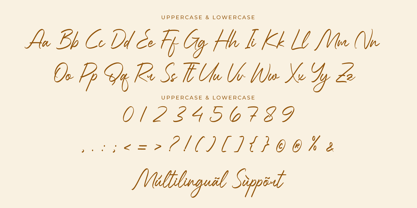 UPPERCASE & LOWERCASE
Aa Bb Cc Dd Ee Ff Gg Hh Ii Kk Ll Mm Nn
Oo Pp Qq Rr Ss Tt Uu Vv Ww Xx Yy Zz
UPPERCASE & LOWERCASE
0 1 2 3 4 5 6 7 8 9
, . : ; < = > ? ! ( ) [ ] { } © ® % &
Múltilinguäl Sùppõrt